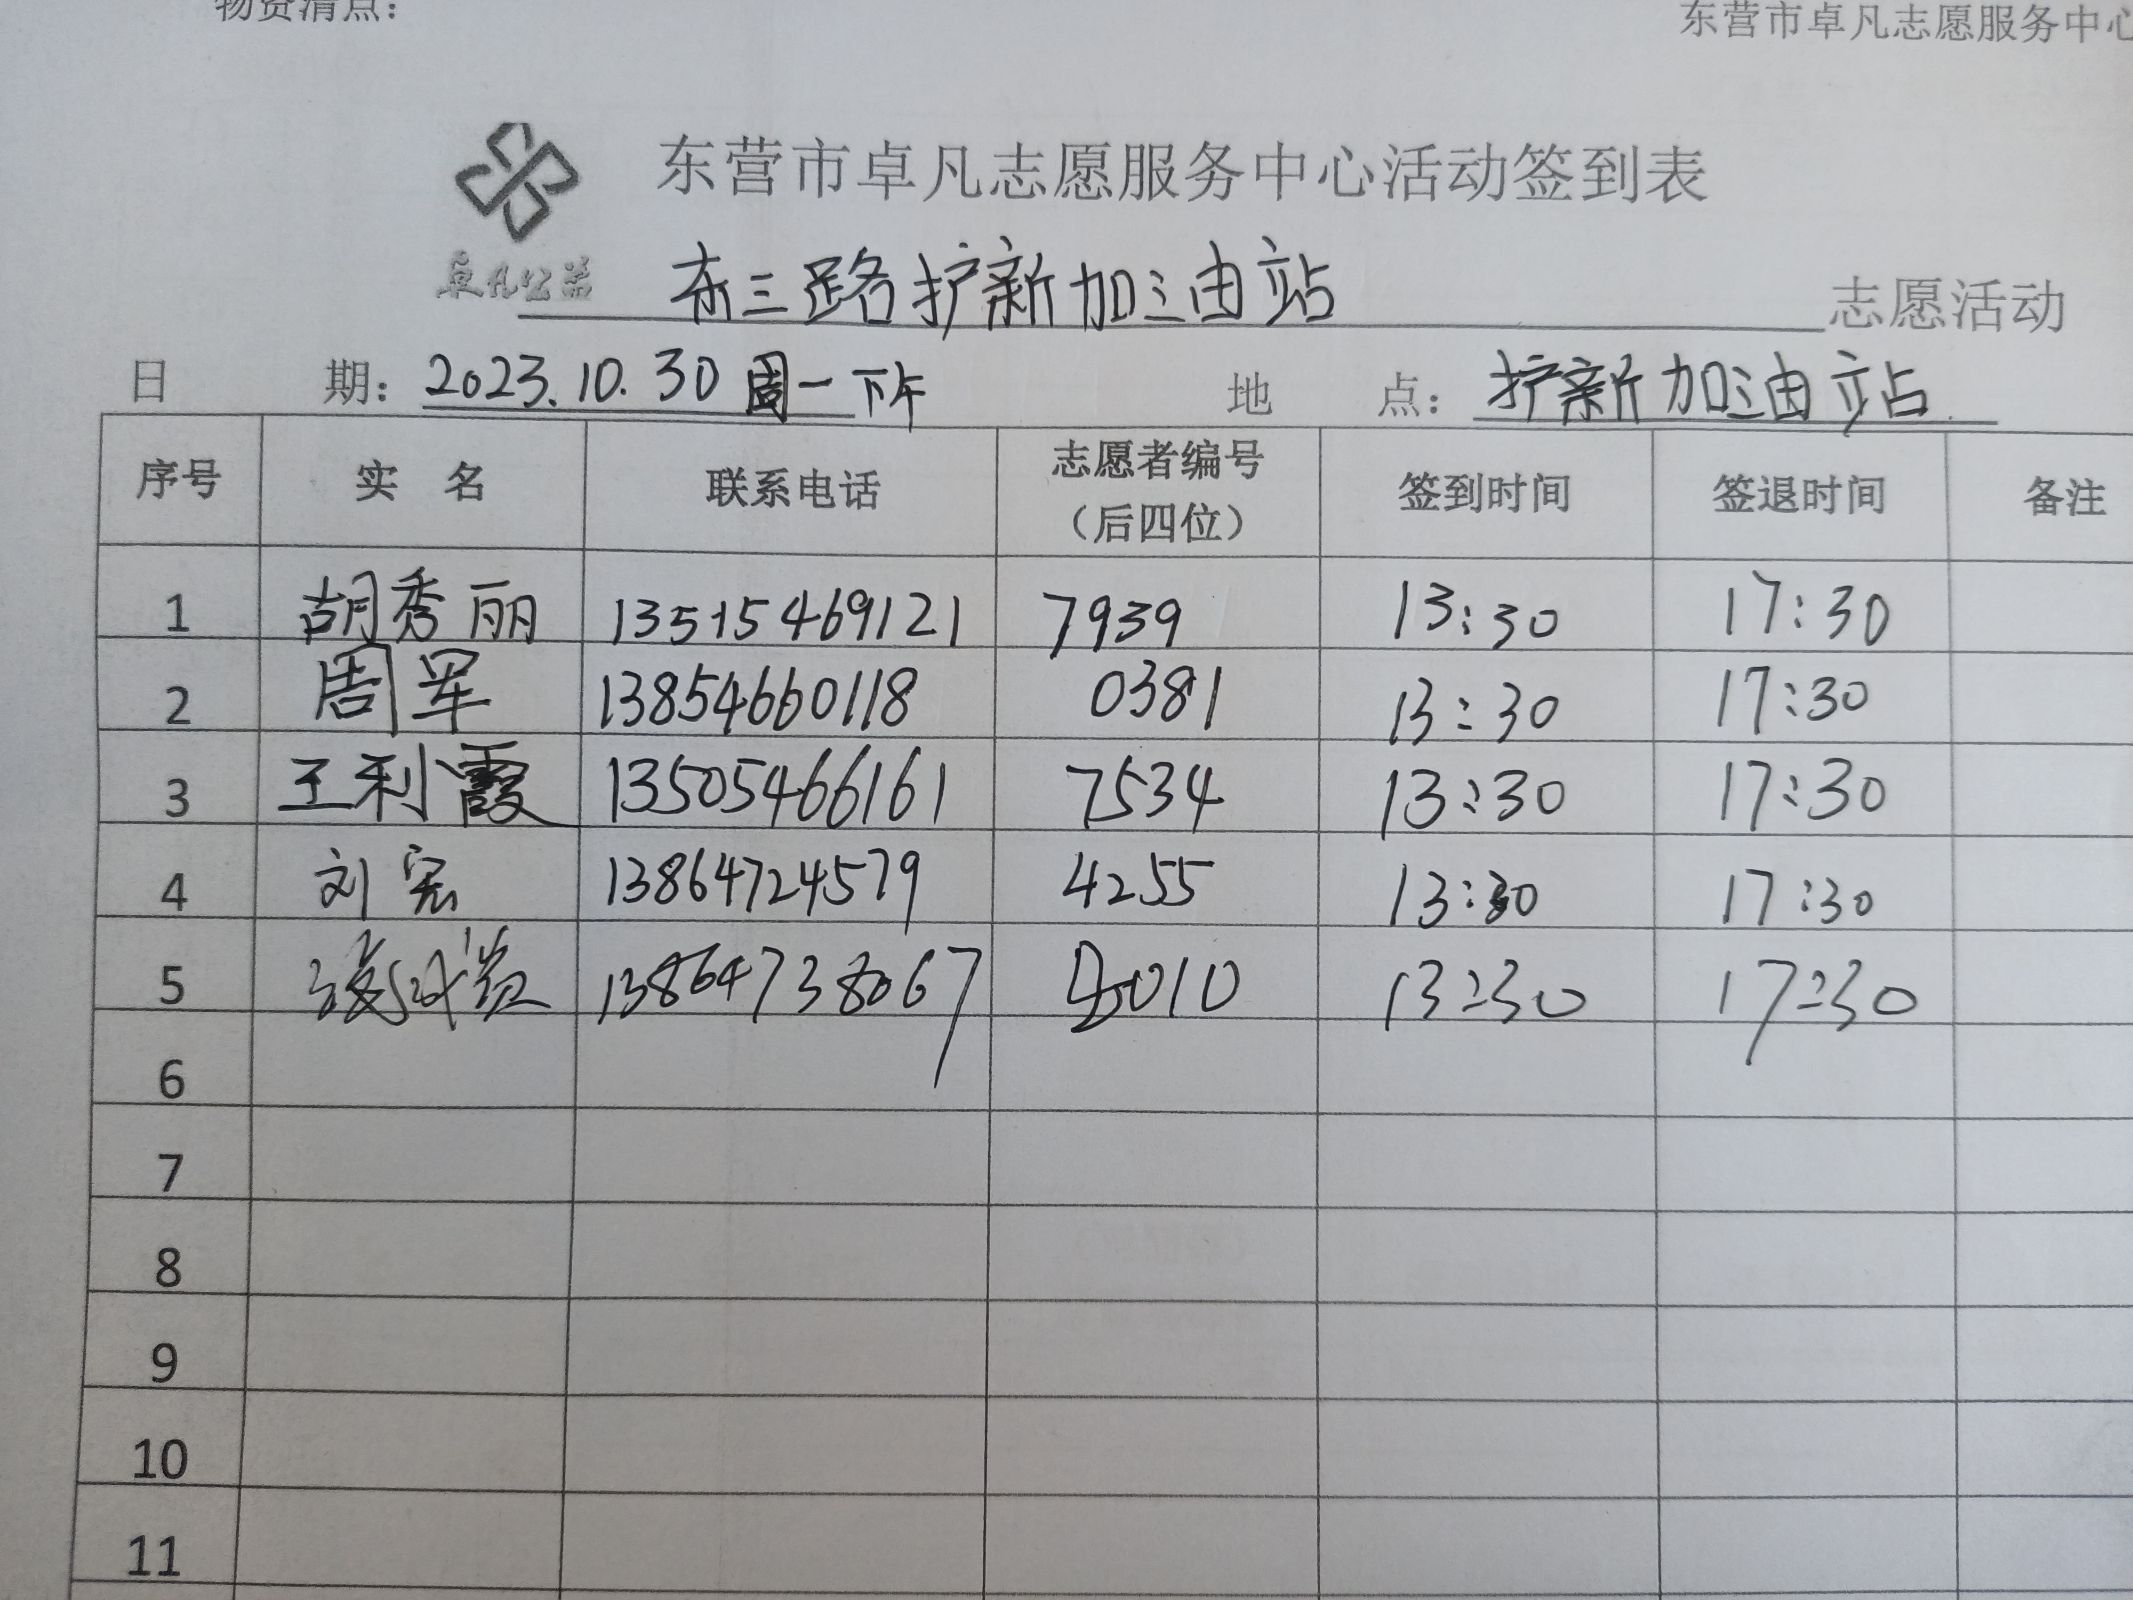 物资清点：
东营市卓凡志愿服务中心
东营市卓凡志愿服务中心活动签到表
卓凡公益
东三路护新加油站 志愿活动
日 期：2023.10.30 周一下午 地 点：护新加油站
序号 实 名 联系电话 志愿者编号（后四位） 签到时间 签退时间 备注
1 胡秀丽 13515469121 7939 13:30 17:30
2 周军 13854660118 0381 13:30 17:30
3 王利霞 13505466161 7534 13:30 17:30
4 刘宏 13864724579 4255 13:30 17:30
5 13864738067 13:30 17:30
6
7
8
9
10
11